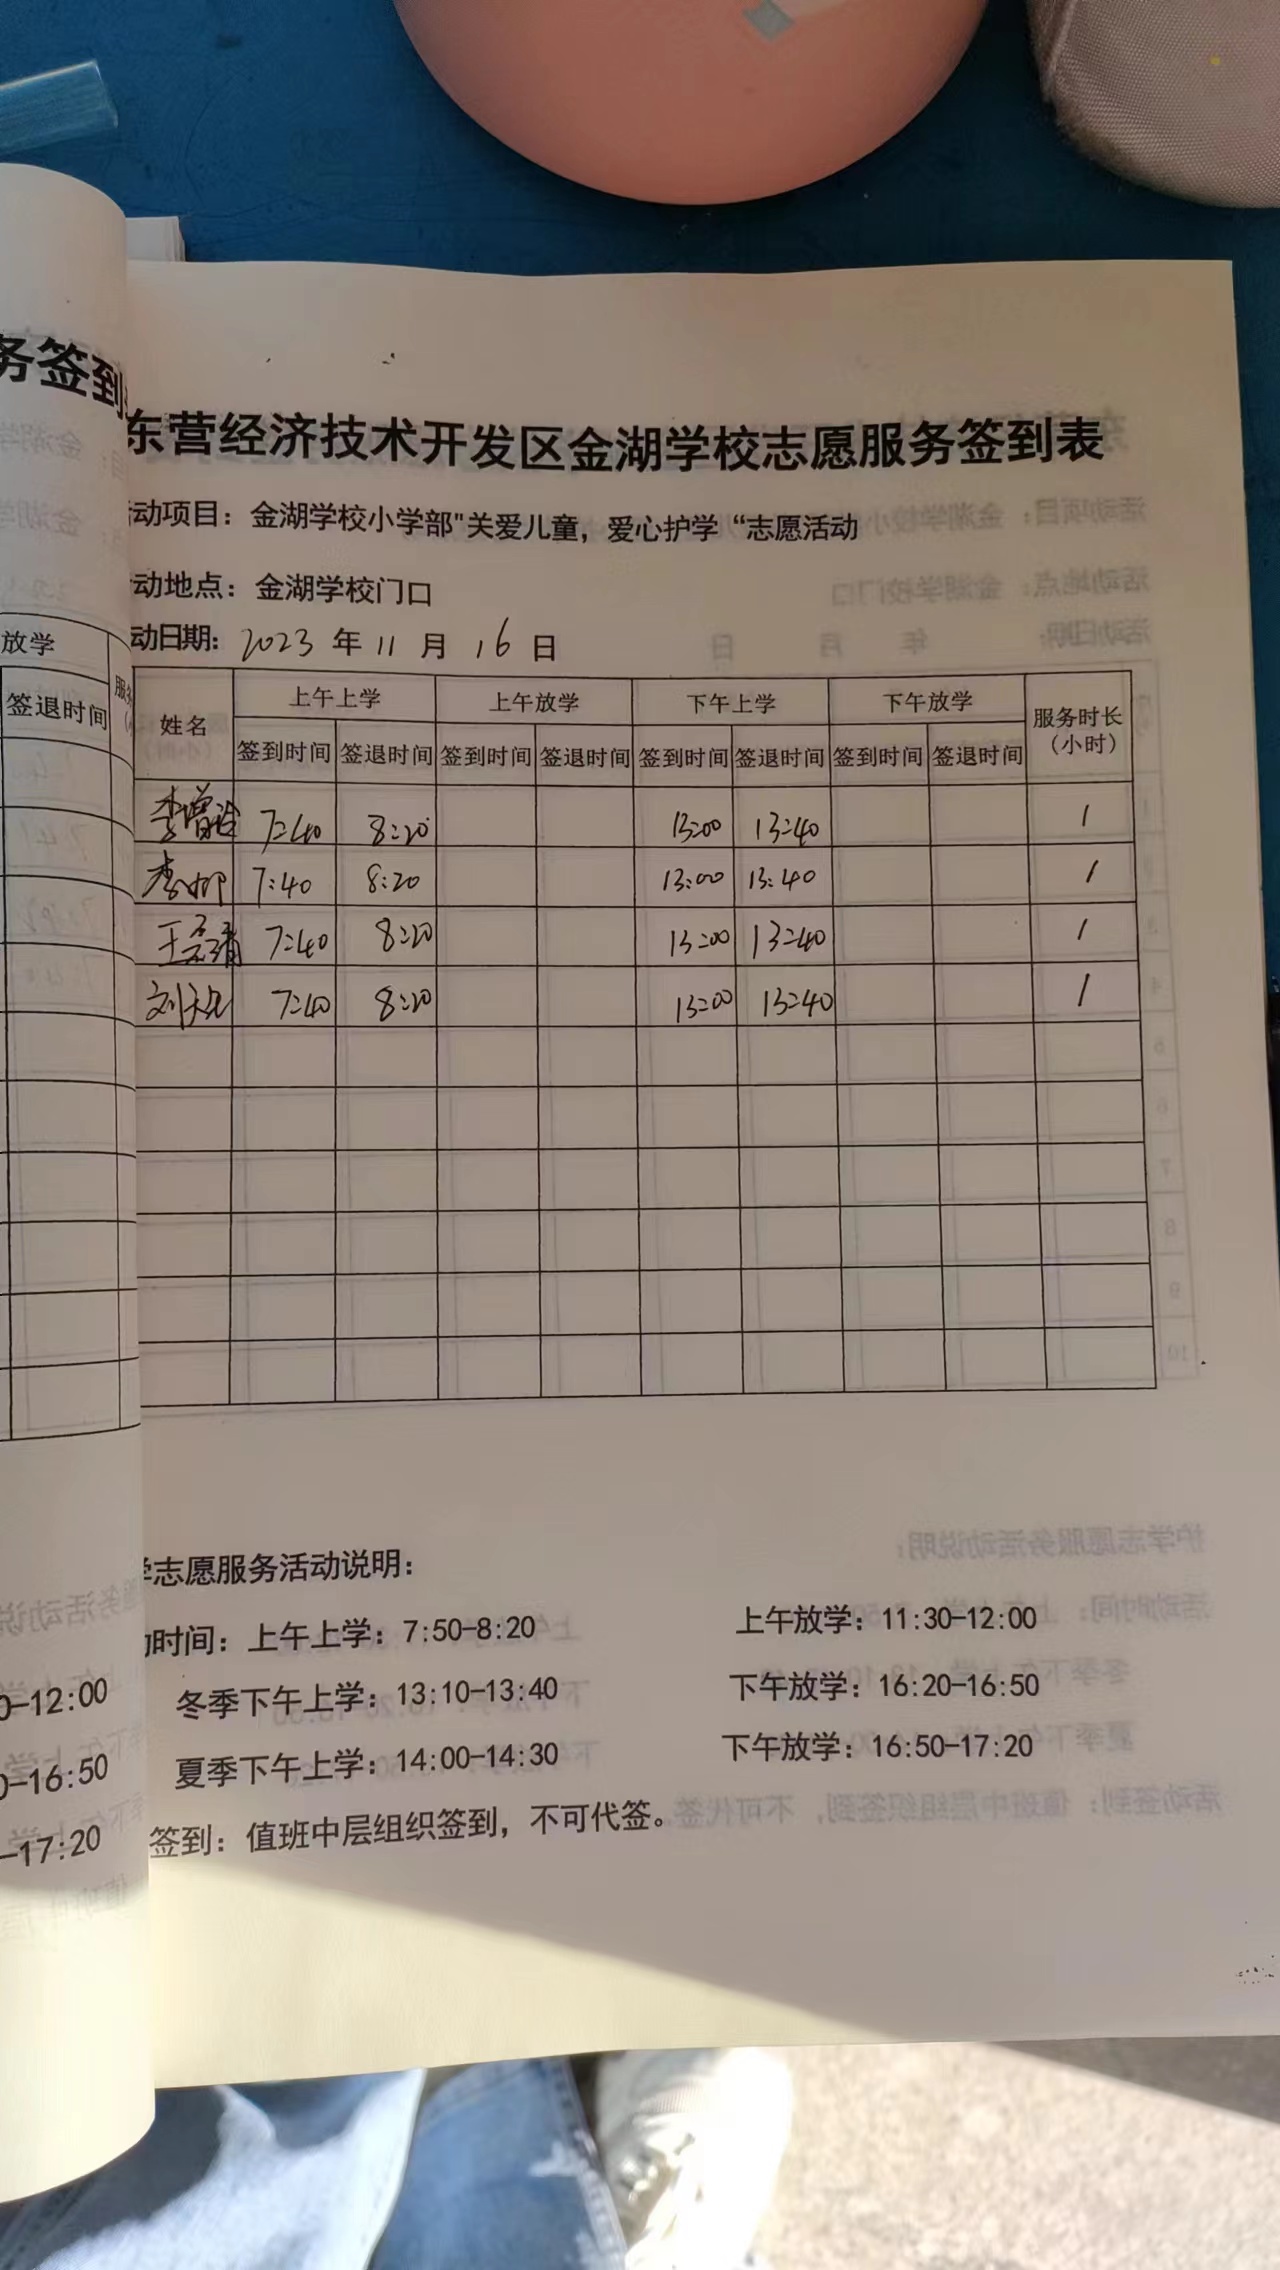 务签到
东营经济技术开发区金湖学校志愿服务签到表
活动项目：金湖学校小学部"关爱儿童，爱心护学“志愿活动
动地点：金湖学校门口
动日期：2023 年 11 月 16 日
放学
签退时间
服务
姓名 上午上学 上午放学 下午上学 下午放学 服务时长（小时）
签到时间 签退时间 签到时间 签退时间 签到时间 签退时间 签到时间 签退时间
李增 7:40 8:20 13:00 13:40 1
李 7:40 8:20 13:00 13:40 1
王 7:40 8:20 13:00 13:40 1
刘 7:40 8:20 13:00 13:40 1
学志愿服务活动说明：
动时间：上午上学：7:50-8:20 上午放学：11:30-12:00
冬季下午上学：13:10-13:40 下午放学：16:20-16:50
夏季下午上学：14:00-14:30 下午放学：16:50-17:20
签到：值班中层组织签到，不可代签。
0-12:00
0-16:50
-17:20